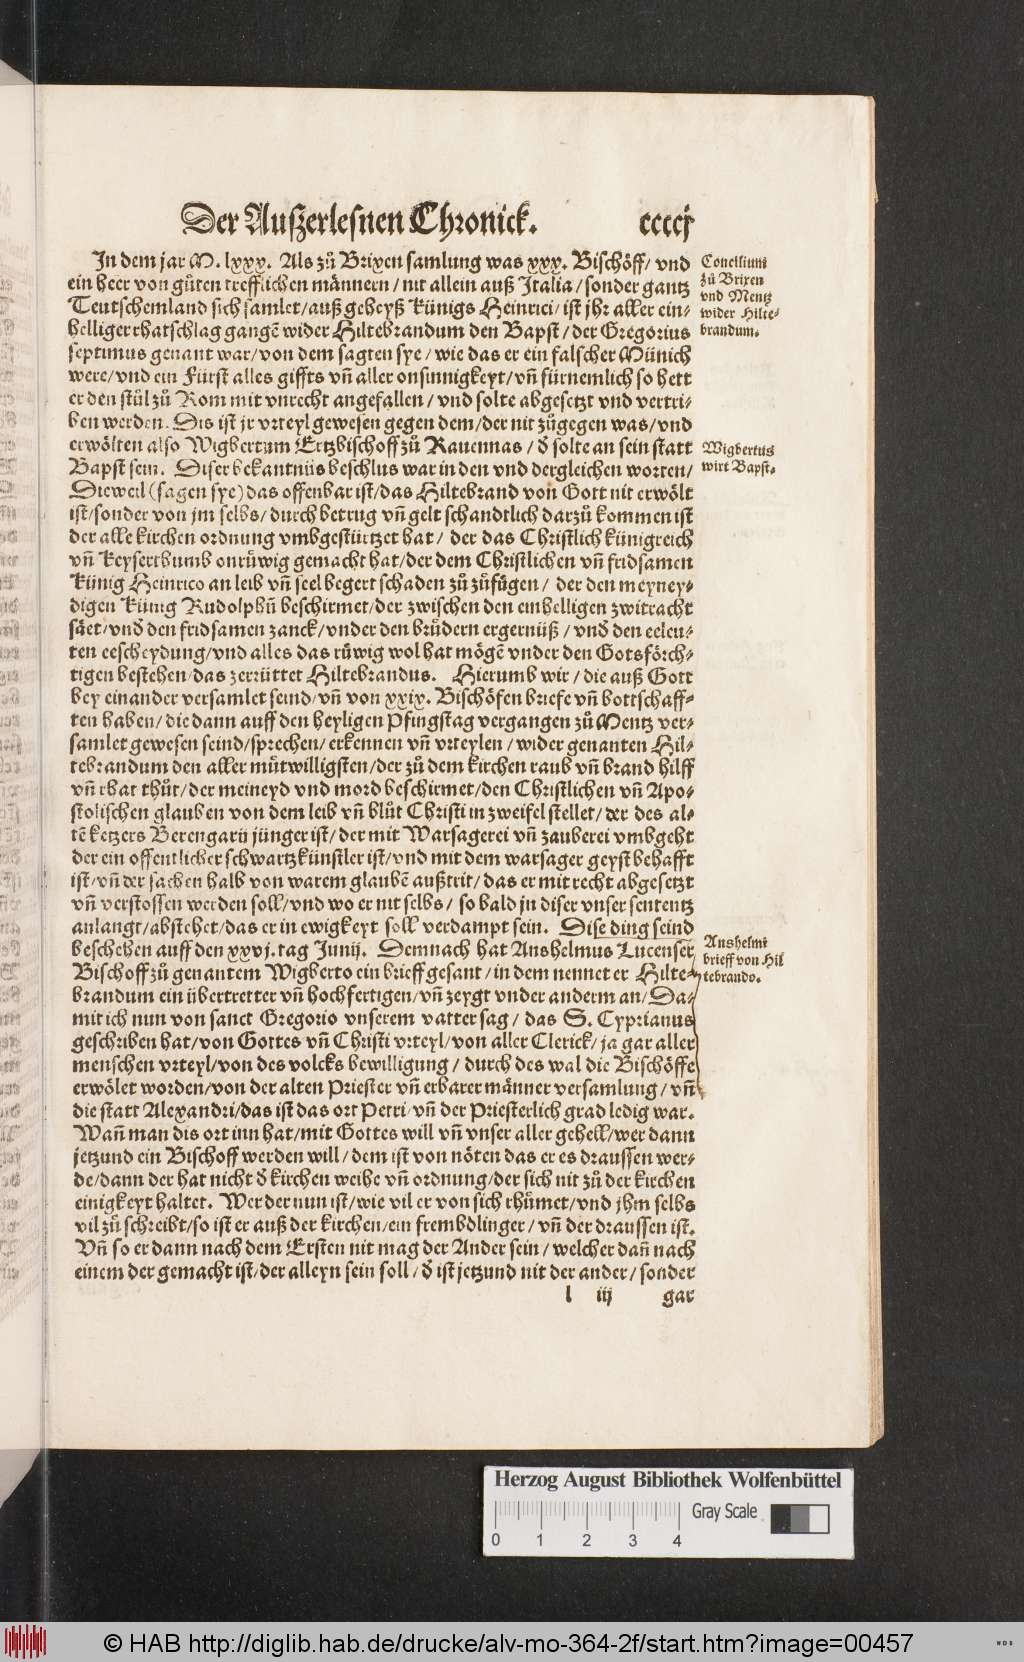 Der Außerlesnen Chronick. ccccj
In dem jar M. lxxx. Als zů Brixen samlung was xxx. Bischöff/ vnd
ein heer von gůten trefflichen männern/ nit allein auß Italia/ sonder gantz
Teutschemland sich samlet/ auß geheyß Künigs Heinrici/ ist jhr aller ein⸗
helliger rhatschlag gangē wider Hiltebrandum den Bapst/ der Gregorius
septimus genant war/ von dem sagten sye/ wie das er ein falscher Münich
were/ vnd ein Fürst alles giffts vñ aller onsinnigkeyt/ vñ fürnemlich so hett
er den stůl zů Rom mit vnrecht angefallen/ vnd solte abgesetzt vnd vertri⸗
ben werden. Dis ist jr vrteyl gewesen gegen dem/ der nit zůgegen was/ vnd
erwölten also Wigbertum Ertzbischoff zů Rauennas/ ď solte an sein statt
Bapst sein. Diser bekantnüs beschlus war in den vnd dergleichen worten/
Dieweil (sagen sye) das offenbar ist/ das Hiltebrand von Gott nit erwölt
ist/ sonder von jm selbs/ durch betrug vñ gelt schandtlich darzů kommen ist
der alle kirchen ordnung vmbgestürtzet hat/ der das Christlich künigreich
vñ Keyserthumb onrüwig gemacht hat/ der dem Christlichen vñ fridsamen
Künig Heinrico an leib vñ seel begert schaden zů zůfügen/ der den meyney⸗
digen Künig Rudolphū beschirmet/ der zwischen den einhelligen zwitracht
säet/ vnd den fridsamen zanck/ vnder den brůdern ergernüß/ vnd den eeleu⸗
ten eescheydung/ vnd alles das růwig wol hat mögē vnder den Gotsförch⸗
tigen bestehen/ das zerrüttet Hiltebrandus. Hierumb wir/ die auß Gott
bey einander versamlet seind/ vñ von xxix. Bischöfen briefe vñ bottschaff⸗
ten haben/ die dann auff den heyligen Pfingstag vergangen zů Mentz ver⸗
samlet gewesen seind/ sprechen/ erkennen vñ vrteylen/ wider genanten Hil⸗
tebrandum den aller můtwilligsten/ der zů dem kirchen raub vñ brand hilff
vñ rhat thůt/ der meineyd vnd mord beschirmet/ den Christlichen vñ Apo⸗
stolischen glauben von dem leib vñ blůt Christi in zweifel stellet/ der des al⸗
tē ketzers Berengarij jünger ist/ der mit Warsagerei vñ zauberei vmbgeht
der ein offentlicher schwartzkünstler ist/ vnd mit dem warsager geyst behafft
ist/ vñ der sachen halb von warem glaubē außtrit/ das er mit recht abgesetzt
vñ verstossen werden soll/ vnd wo er nit selbs/ so bald jn diser vnser sententz
anlangt/ abstehet/ das er in ewigkeyt soll verdampt sein. Dise ding seind
beschehen auff den xxvj. tag Junij. Demnach hat Anshelmus Lucenser
Bischoff zů genantem Wigberto ein brieff gesant/ in dem nennet er Hilte⸗
brandum ein übertretter vñ hochfertigen/ vñ zeygt vnder anderm an/ Da⸗
mit ich nun von sanct Gregorio vnserem vatter sag/ das S. Cyprianus
geschriben hat/ von Gottes vñ Christi vrteyl/ von aller Clerick/ ja gar aller
menschen vrteyl/ von des volcks bewilligung/ durch des wal die Bischöffe
erwölet worden/ von der alten Priester vñ erbarer männer versamlung/ vñ
die statt Alexandri/ das ist das ort Petri/ vñ der Priesterlich grad ledig war.
Wañ man dis ort inn hat/ mit Gottes will vñ vnser aller gehell/ wer dann
jetzund ein Bischoff werden will/ dem ist von nöten das er es draussen wer⸗
de/ dann der hat nicht ď kirchen weihe vñ ordnung/ der sich nit zů der kirchen
einigkeyt haltet. Wer der nun ist/ wie vil er von sich rhůmet/ vnd jhm selbs
vil zů schreibt/ so ist er auß der kirchen/ ein frembdlinger/ vñ der draussen ist.
Vñ so er dann nach dem Ersten nit mag der Ander sein/ welcher dañ nach
einem der gemacht ist/ der alleyn sein soll/ ď ist jetzund nit der ander/ sonder
l iij gar
Concilium
zů Brixen
vnd Mentz
wider Hilte⸗
brandum.
Wigbertus
wirt Bapst.
Anshelmi
brieff von Hil
tebrando.
Herzog August Bibliothek Wolfenbüttel
Gray Scale
0 1 2 3 4
© HAB http://diglib.hab.de/drucke/alv-mo-364-2f/start.htm?image=00457